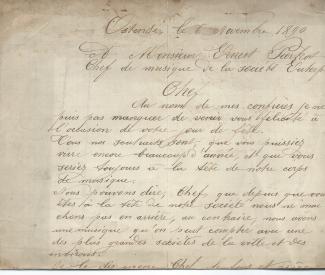 Ostende, le 6 Novembre 1890
A Monsieur Ernest
Chef de musique de la société
Chef
Au nom de mes confrères je ne
puis pas manquer de venir vous félicité à
l'occasion de votre jour de fête.
Tous nos souhaits sont, que vous puissiez
vivre encore beaucoup d'année, et que vous
seriez toujours à la tête de notre corps
de musique.
Nous pouvons dire, Chef que depuis que vous
êtes à la tête de notre société nous ne mar
chons pas en arrière, au contraire, nous avons
une musique qu'on peut compte avec une
des plus grandes sociétés de la ville et des
environs.
Chef